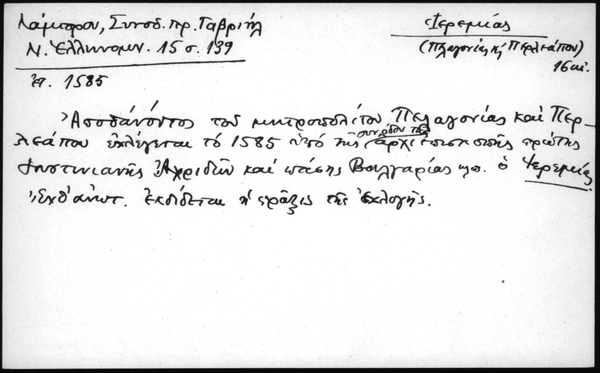 Λάμπρου, Συνοδ. πρ. Γαβριήλ
Ν. Ἑλληνομν. 15 σ. 139
ἔτ. 1585
Ἱερεμίας
(Πελαγονίας κ Περλεάπου)
16 αἰ.
Ἀποθανόντος τοῦ μητροπολίτου Πελαγονίας καὶ Περ-
λεάπου ἐκλέγεται τὸ 1585 ὑπὸ τῆς συνόδου τῆς ἀρχιεπισκοπῆς πρώτης
Ἰουστινιανῆς Ἀχριδῶν καὶ πάσης Βουλγαρίας κλπ. ὁ Ἱερεμίας
Ἐκδίδεται ἡ πρᾶξις τῆς ἐκλογῆς.